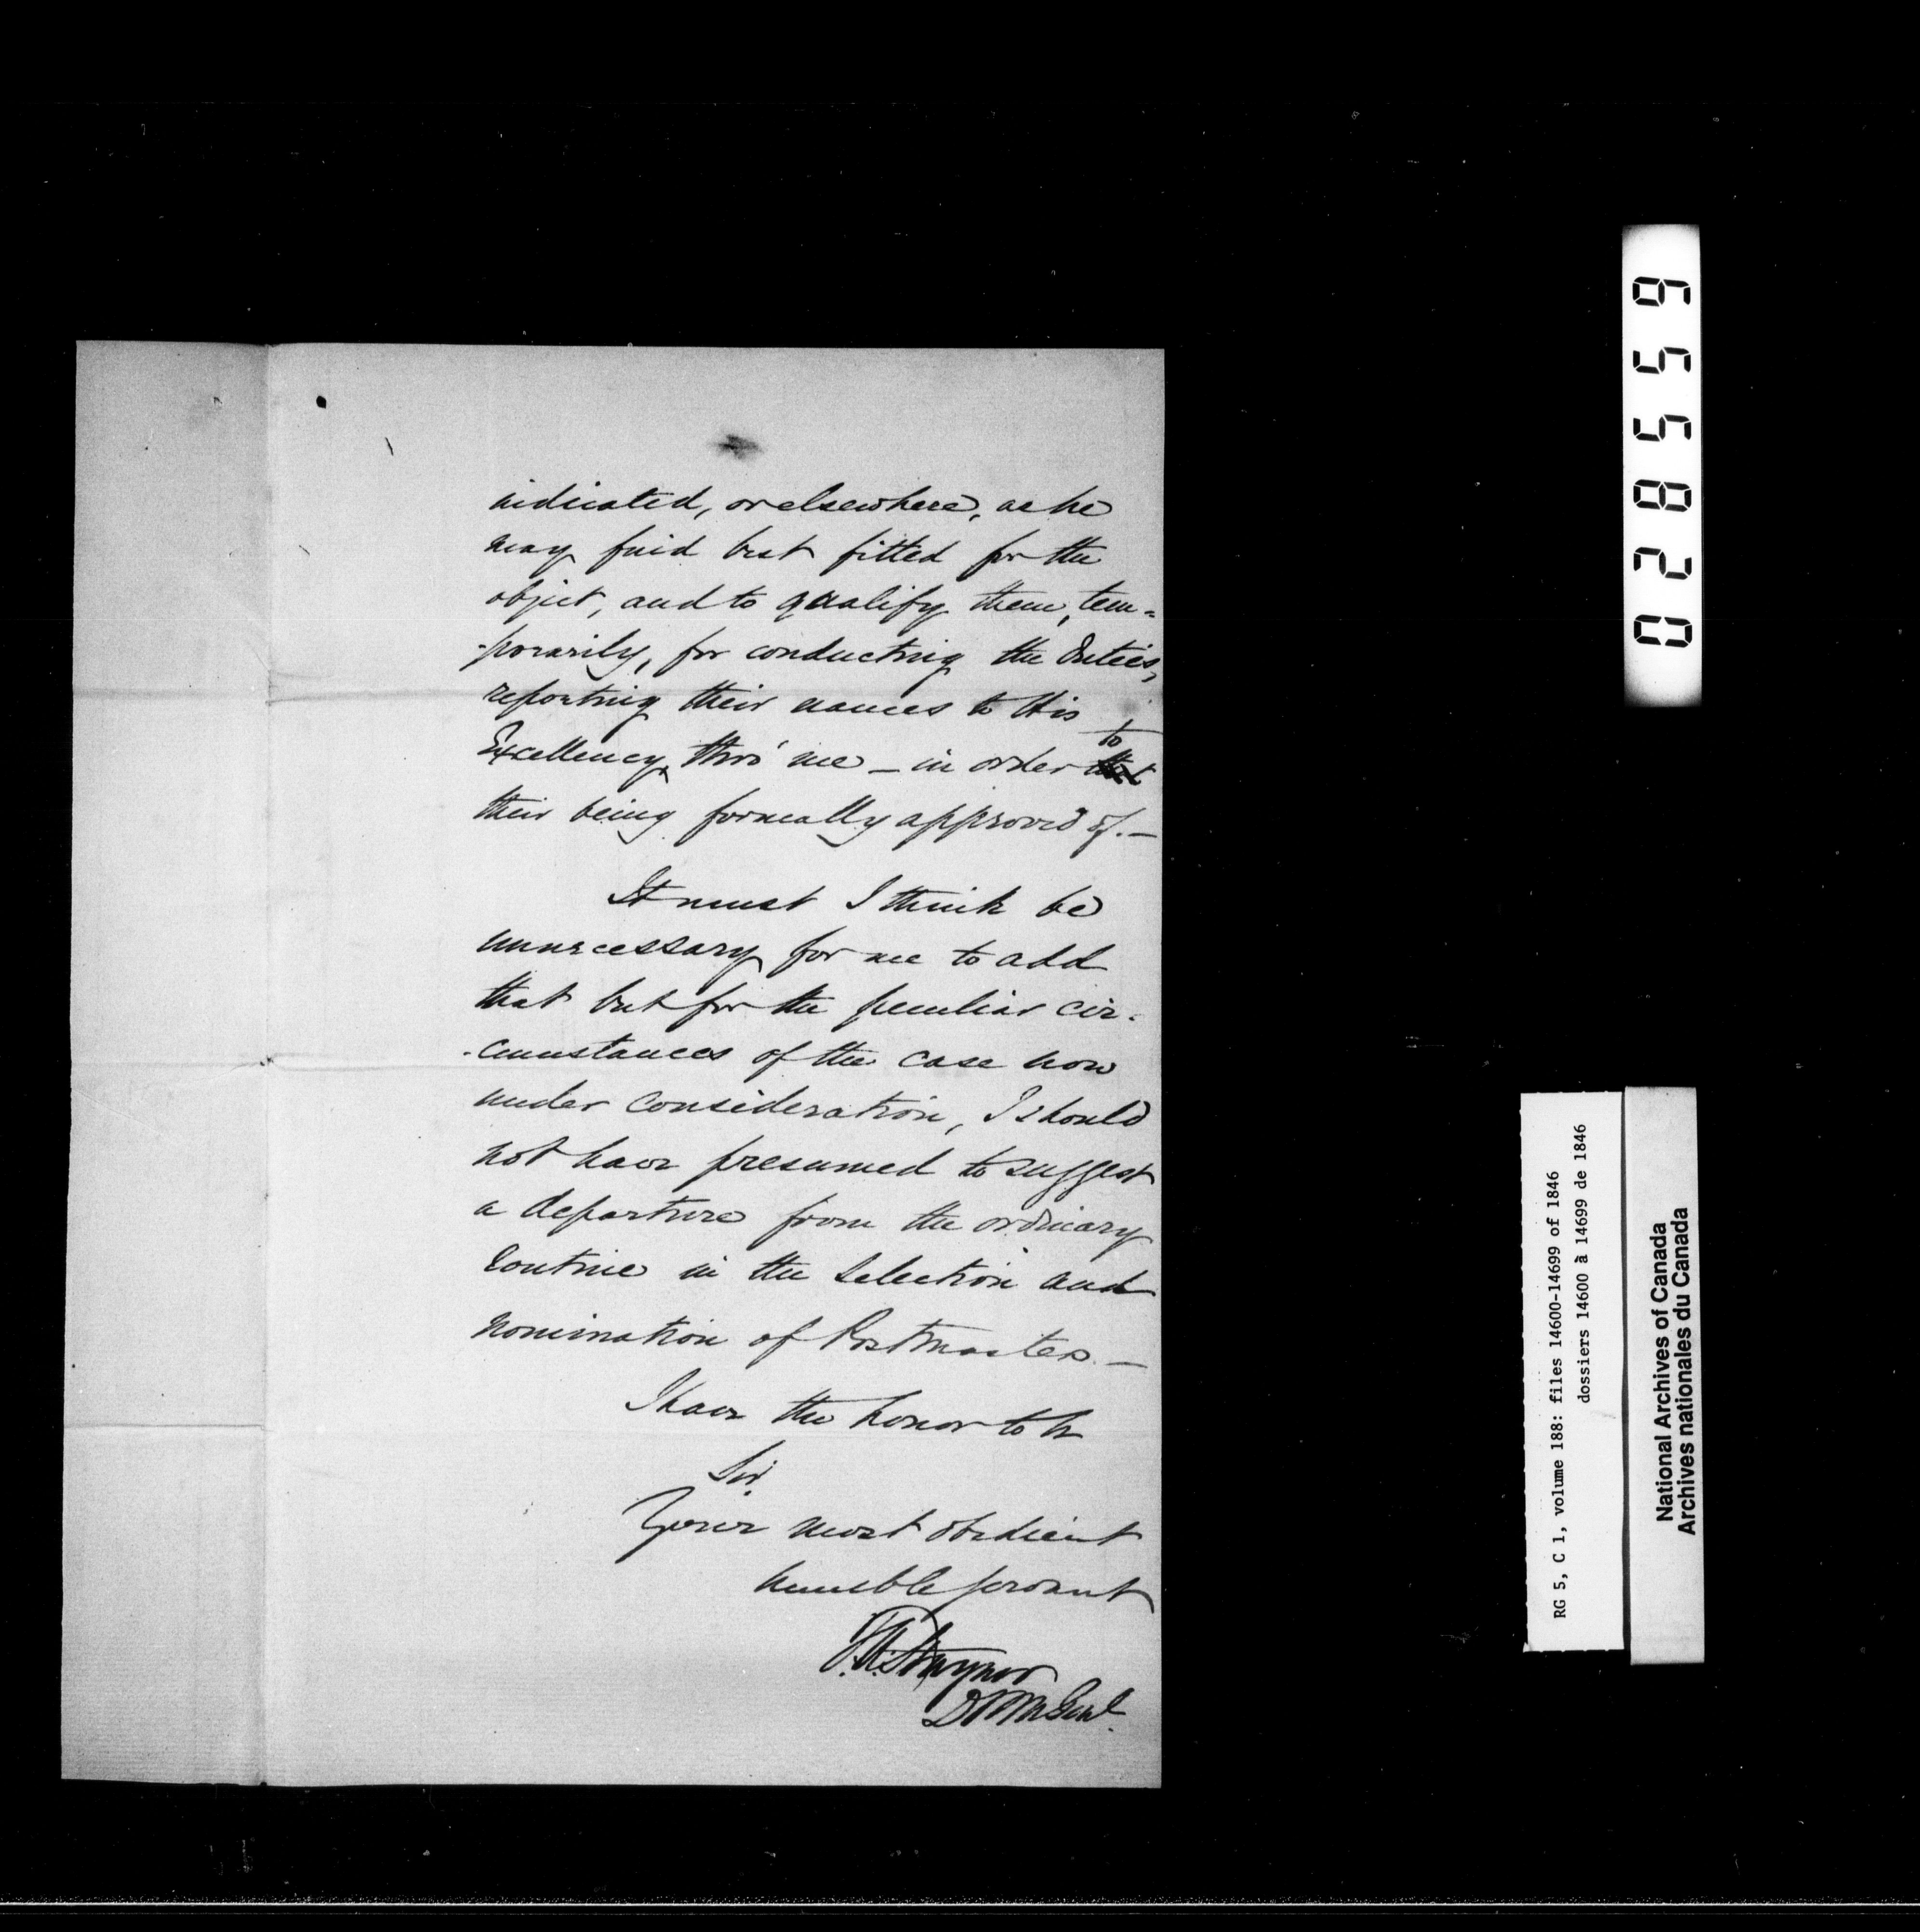 indicated, or elsewhere, as he
may find best fitted for the
object, and to qualify them, tem=
-porarily, for conducting the duties,
reporting their names to His
Excellency, thro' me – in order to
their being formally approved of. –
It must I think be
unnecessary for me to add
that but for the peculiar cir-
-cumstances of the case now
under consideration, I should
not have presumed to suggest
a departure from the ordinary
routine in the selection and
nomination of Postmasters. –
I have the honor to be
Sir,
Your most obedient
humble servant
T.A. Stayner
DPMGenl.
028559
RG 5, C 1, volume 188: files 14600-14699 of 1846
dossiers 14600 à 14699 de 1846
National Archives of Canada
Archives nationales du Canada